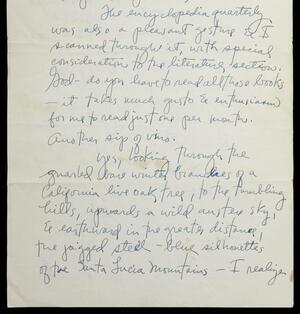 The encyclopedia quarterly
was also a pleasant gesture & I
scanned through it, with special
consideration to the literature section.
God - do you have to read all those books
- it takes much gusto & enthusiasm
for me to read just one per month.
Another sip of vino.
Yes, looking through the
gnarled bare winter branches of a
California live oak tree, to the tumbling
hills, upwards a wild austere sky,
& eastward in the greater distance,
the jagged steel-blue silhouettes
of the Santa Lucia Mountains - I realize